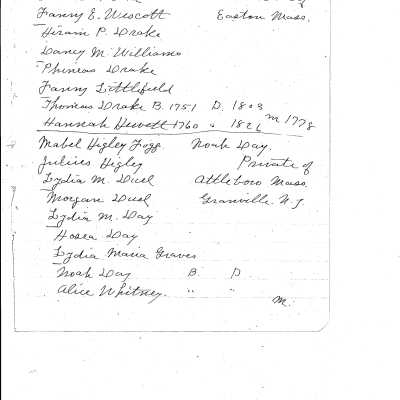 Fanny E. Wescott Easton Mass.
Hiram P. Drake
Dancy M. Williams
Phineas Drake
Fanny Littlefield
Thomas Drake B. 1751 D. 1803
Hannah Hewett 1760 " 1826 m 1778
Mabel Higley Fogg Noah Day.
Julius Higley Private of
Lydia M. Duel Attleboro Mass
Morgan Duel Granville N.Y
Lydia M. Day
Hosea Day
Lydia Maria Graves
Noah Day B D
Alice Whitney. " "
m.